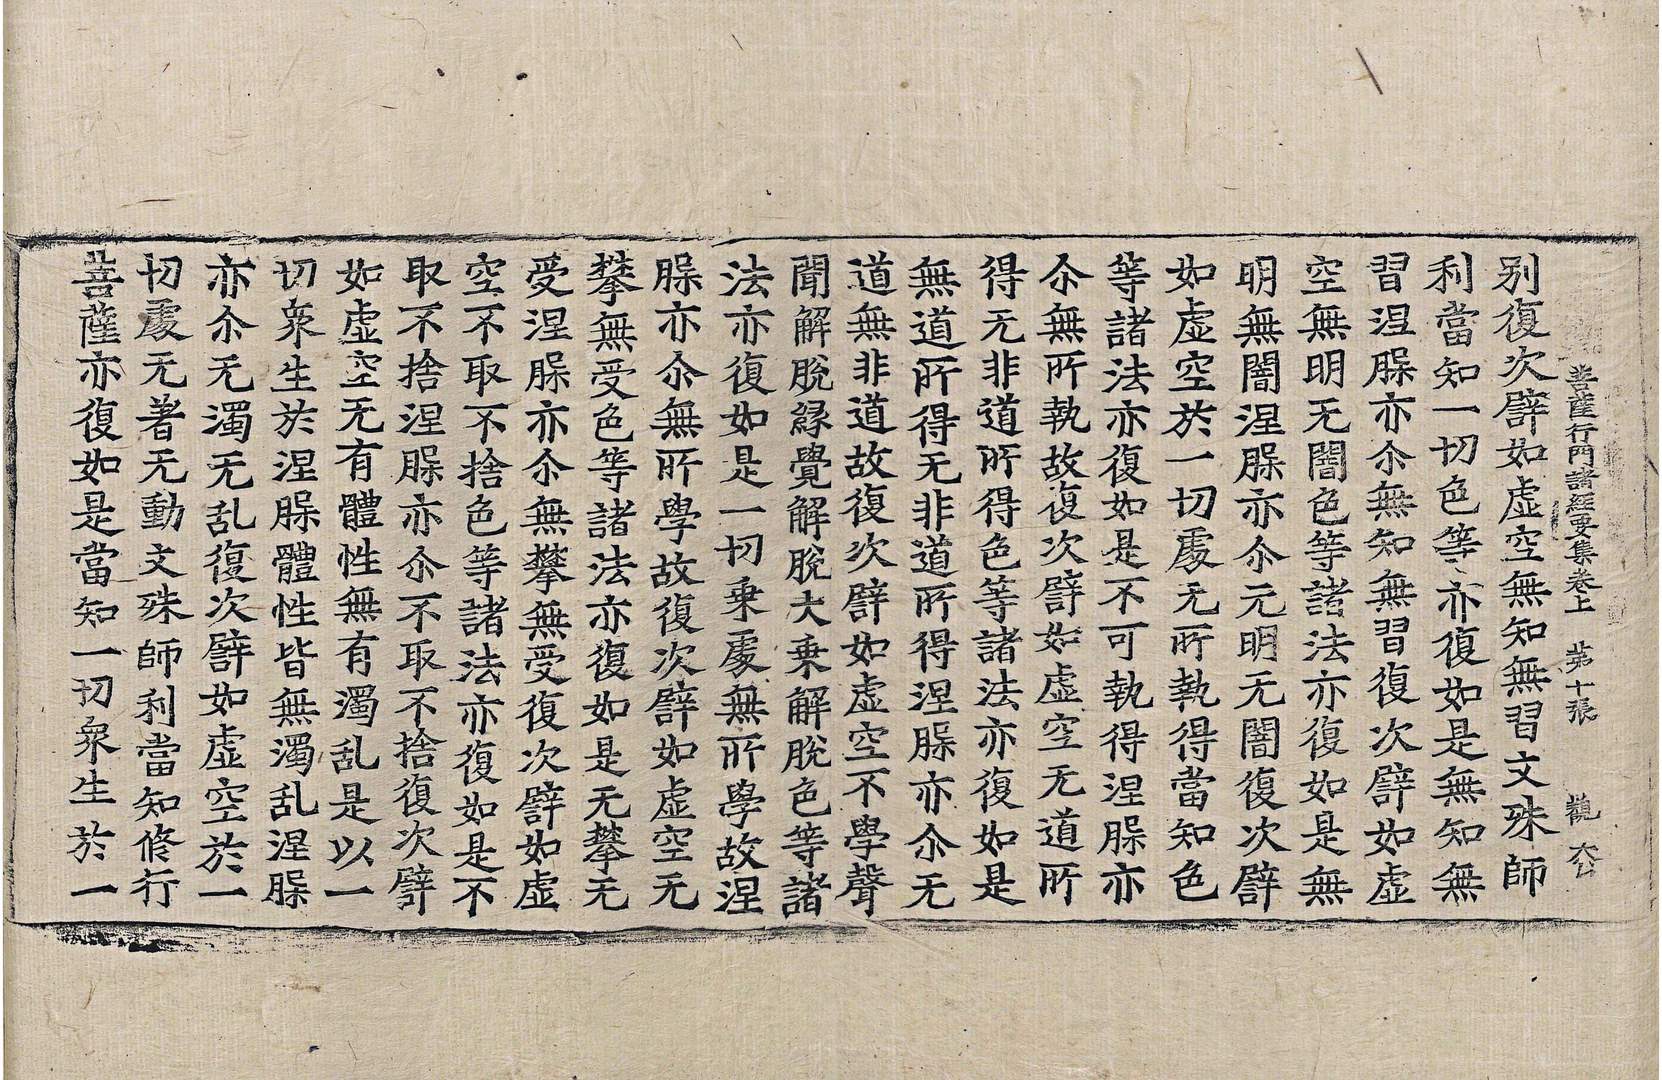 菩薩行門諸經要集卷上　苐十張　觀　厺
別復次譬如虛空無知無習文殊師
利當知一切色等亦復如是無知無
習涅腺亦尒無知無習復次譬如虛
空無明无闇色等諸法亦復如是無
明無闇涅腺亦尒元明无闇復次譬
如虛空於一切處无所執得當知色
等諸法亦復如是不可執得涅腺亦
尒無所執故復次譬如虛空无道所
得无非道所得色等諸法亦復如是
無道所得无非道所得涅腺亦尒无
道無非道故復次譬如虛空不學聲
聞解脫緣覺解脫大乗解脫色等諸
法亦復如是一切乗處無所學故涅
腺亦尒無所學故復次譬如虛空无
攀無受色等諸法亦復如是无攀无
受涅腺亦尒無攀無受復次譬如虛
空不取不捨色等諸法亦復如是不
取不捨涅腺亦尒不取不捨復次譬
如虛空无有體性無有濁乱是以一
切衆生於涅腺體性皆無濁乱涅腺
亦尒无濁无乱復次譬如虛空於一
切處无著无動文殊師利當知修行
菩薩亦復如是當知一切衆生於一